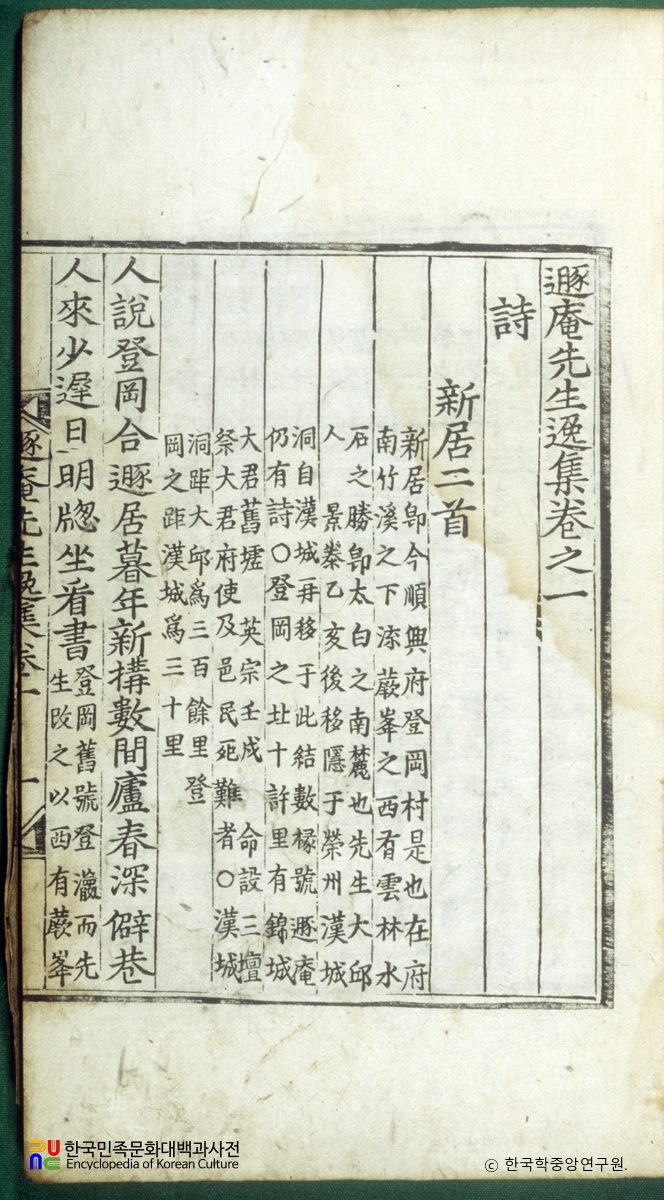 遯庵先生逸集卷之一
詩
新居二首
新居卽今順興府登岡村是也在府
南竹溪之下蕨峯之西有雲林水
石之勝卽太白之南麓也先生大邱
人 景泰乙亥後移隱于榮州漢城
洞自漢城再移于此結數椽號遯庵
仍有詩○登岡之北十許里有錦城
大君舊墟 英宗壬戌 命設三壇
祭大君府使及邑民死難者○漢城
洞距大邱爲三百餘里登
岡之距漢城爲三十里
人說登岡合遯居暮年新搆數間廬春深僻巷
人來少遲日明牕坐看書
登岡舊號登瀛而先
生改之以西有蕨峯
遯庵先生逸集卷一
一
한국민족문화대백과사전
Encyclopedia of Korean Culture
ⓒ 한국학중앙연구원.